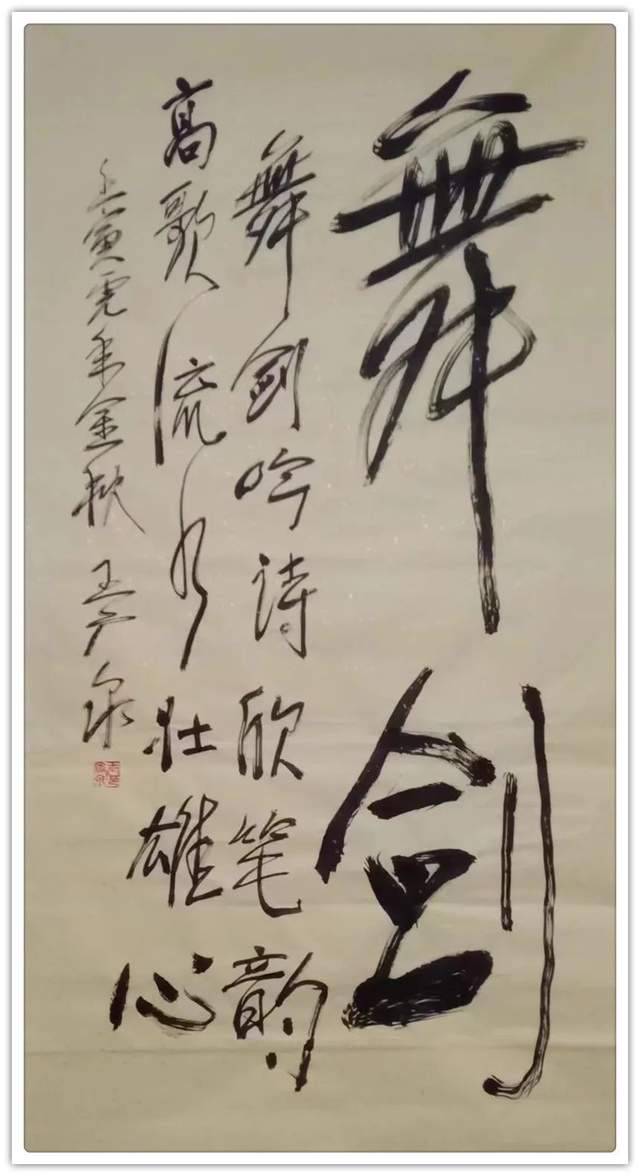 舞剑
舞剑吟诗欣笔韵
高歌流水壮雄心
壬寅虎年金秋 王广泉